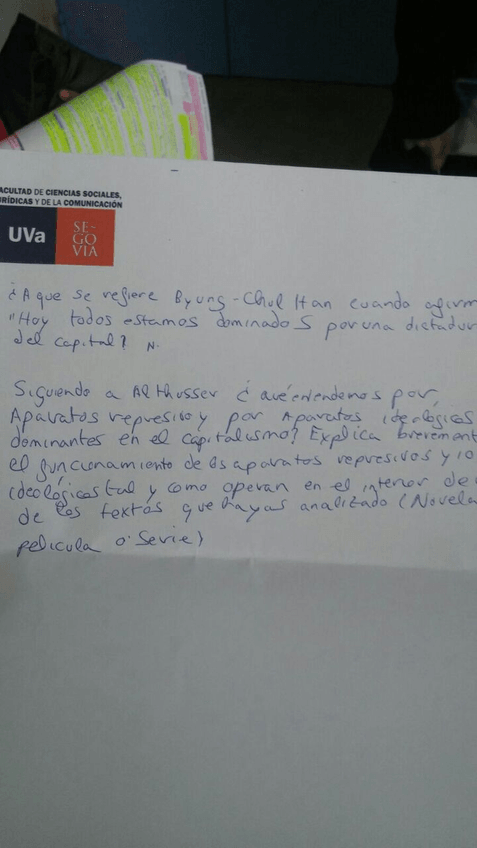 ACULTAD DE CIENCIAS SOCIALES,
URÍDICAS Y DE LA COMUNICACIÓN
UVa
SE-
GO
VIA
¿A que se refiere Byung-Chul Han cuando afirm
"Hoy todos estamos dominados por una dictadur
del capital? N.
Siguiendo a Althusser ¿ qué entendemos por
Aparatos represivo y por Aparatos ideológicos
dominantes en el capitalismo? Explica brevement
el funcionamiento de los aparatos represivos y lo
ideológicos tal y como operan en el interior de
de los textos que hayas analizado (Novela
pelicula o serie)